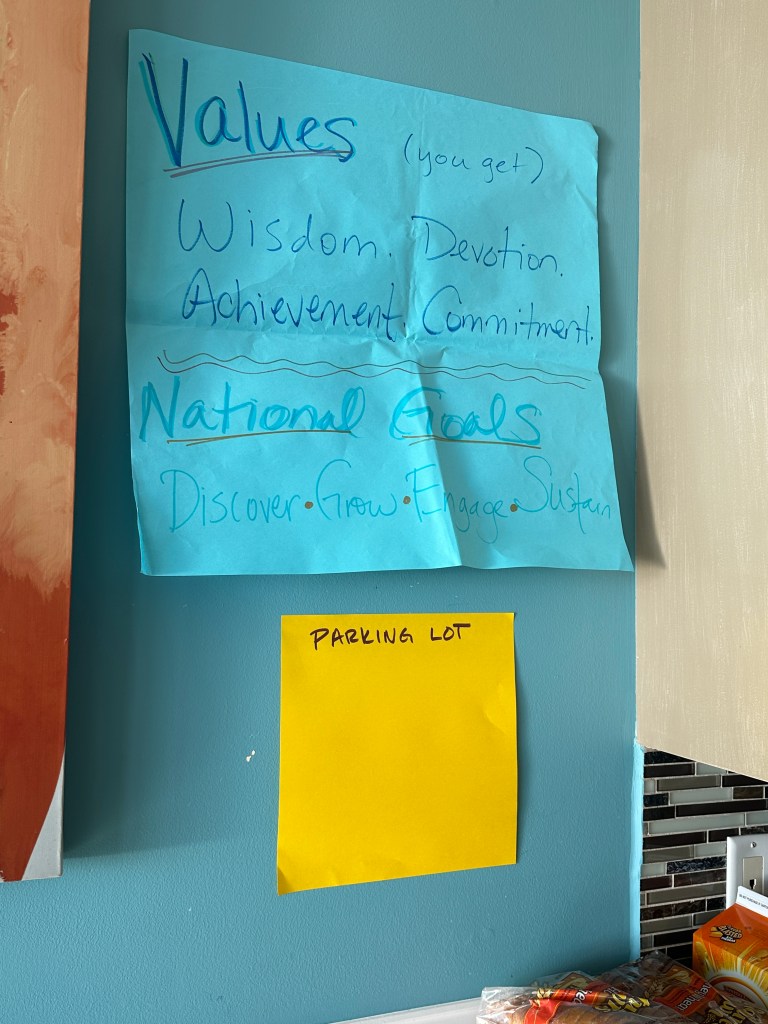 Values
(you get)
Wisdom. Devotion.
Achievement. Commitment.
National Goals
Discover • Grow • Engage • Sustain
PARKING LOT